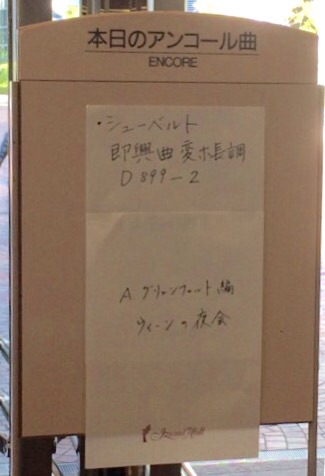 本日のアンコール曲
ENCORE
・シューベルト
即興曲 変ホ長調
D 899-2
A. グリュンフェルト 編
ウィーンの夜会